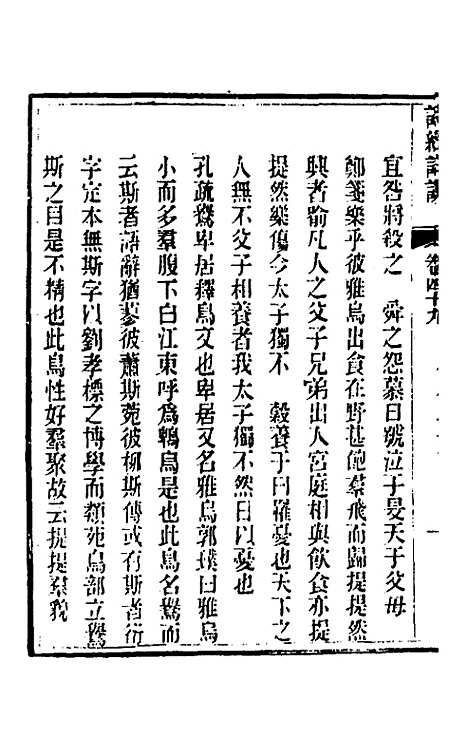 詩經詳說
卷四十九
宜咎將殺之　舜之怨慕日號泣于旻天于父母
鄭箋樂乎彼雅烏出食在野甚飽羣飛而歸提提然
興者喻凡人之父子兄弟出入宮庭相與飲食亦提
提然樂傷今太子獨不　穀養于曰罹憂也天下之
人無不父子相養者我太子獨不然日以憂也
孔疏鸒卑居釋鳥文也卑居又名雅烏郭璞曰雅烏
小而多羣腹下白江東呼爲鵯烏是也此鳥名鸒而
云斯者語辭猶蓼彼蕭斯菀彼柳斯傳或有斯者衍
字定本無斯字以劉孝標之博學而類苑鳥部立鸒
斯之目是不精也此鳥性好羣聚故云提提羣貌